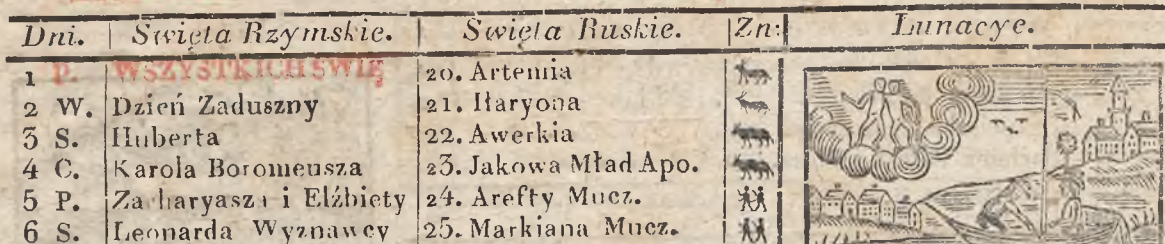 Dni. Swięta Rzymskie. Swięta Ruskie. Zn: Lunacye.
1 P. WSZYSTKICH SWIĘ 20. Artemia
2 W. Dzień Zaduszny 21. Ilaryona
3 S. Huberta 22. Awerkia
4 C. Karola Boromeusza 23. Jakowa Mład Apo.
5 P. Zacharyasza i Elżbiety 24. Arefty Mucz.
6 S. Leonarda Wyznawcy 25. Markiana Mucz.